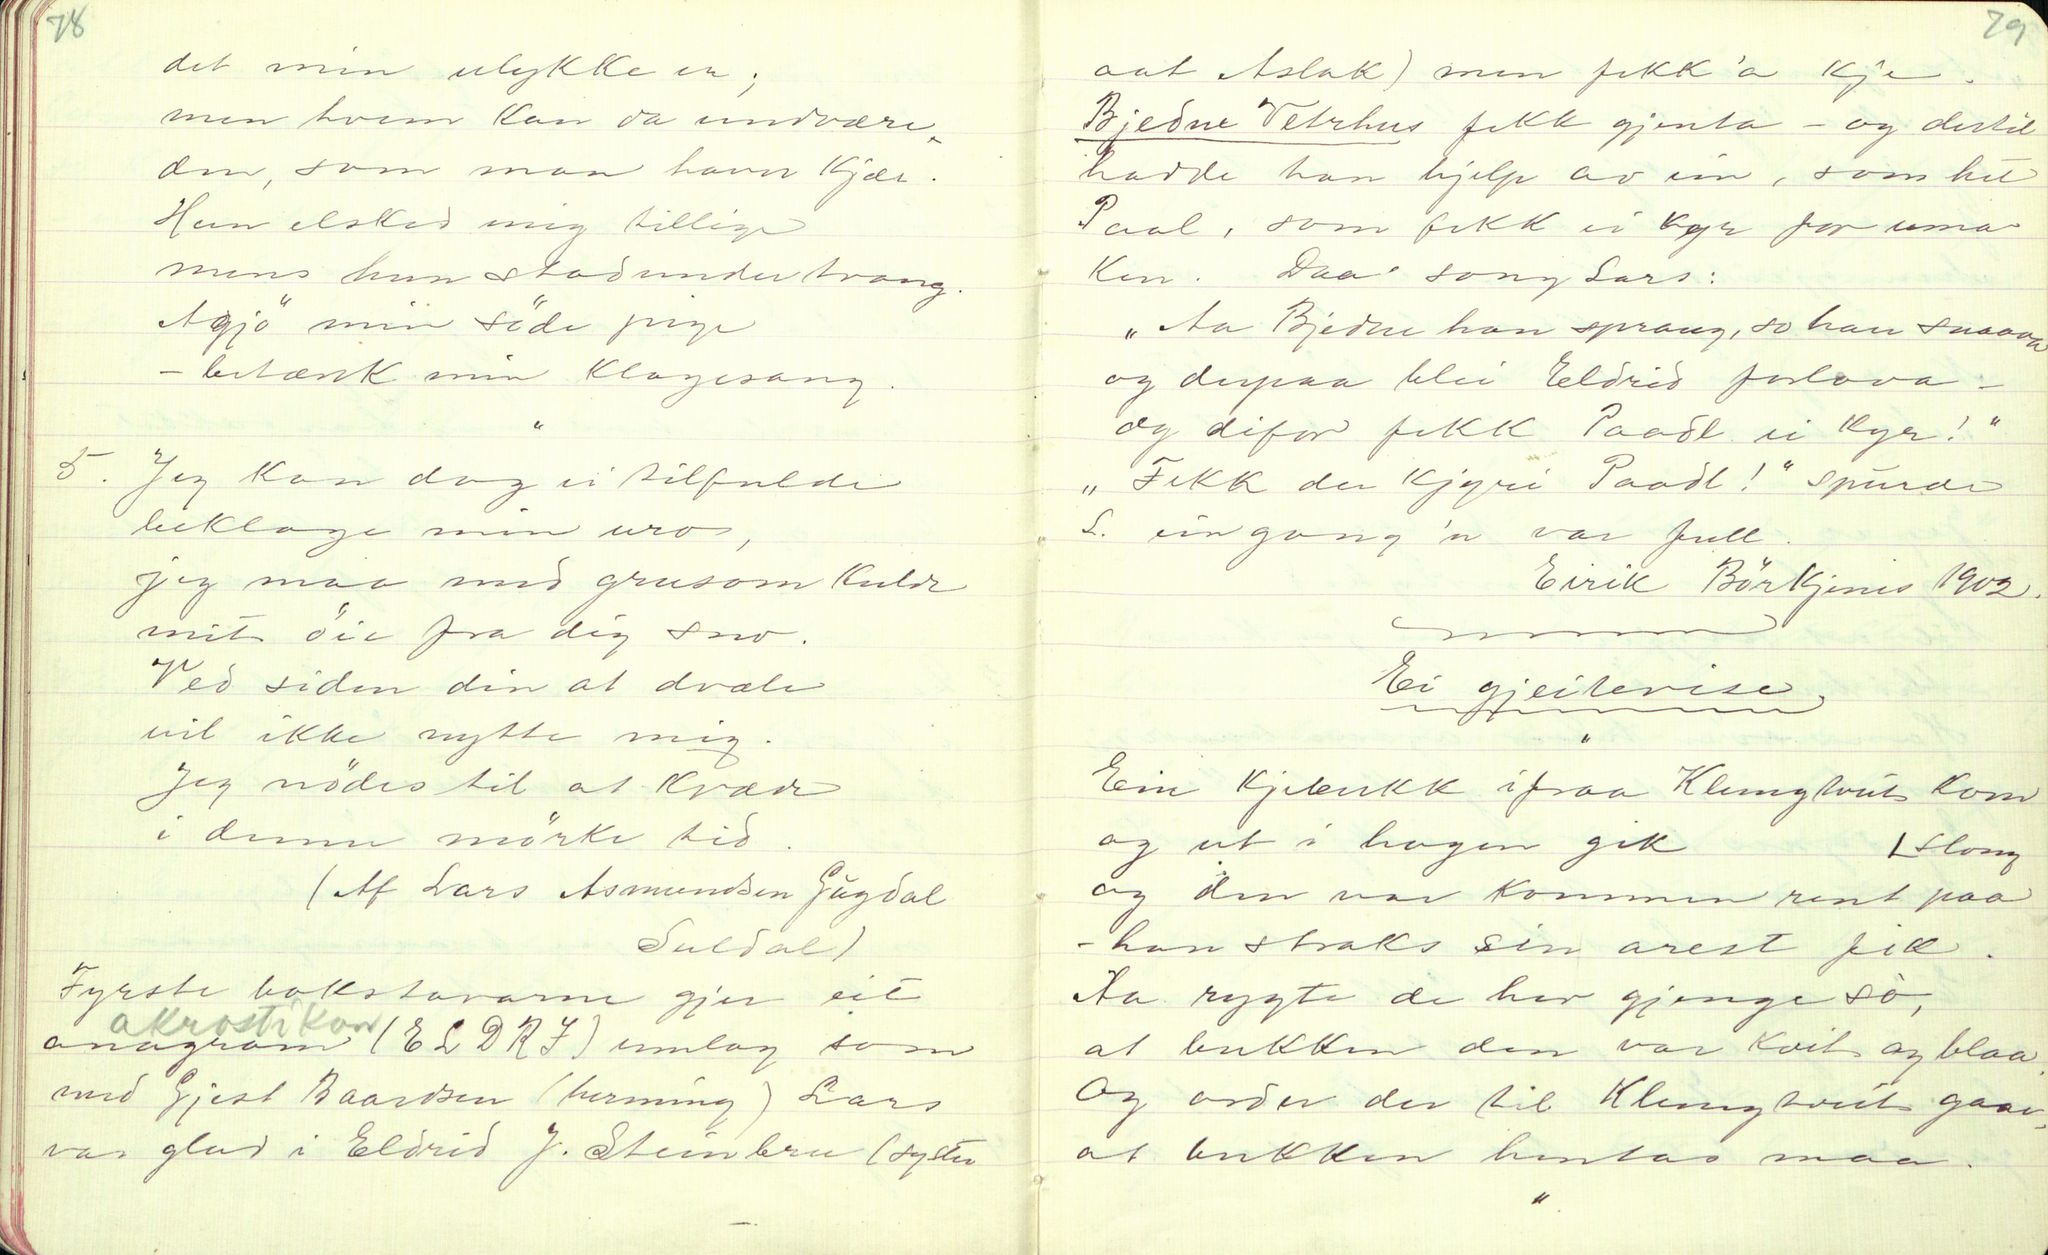 78
det min ulykke er;
men hvem kan da undvære
den, som man haver kjær.
Hun elsked mig tillige
mens hun stod under tvang.
Agjö min söde pige
- betænk min klagesang.
"
5. Jeg kan dog ei tilfulde
beklage min uro,
jeg maa med grusom kulde
mit öie fra dig sno.
Ved siden din at dvæle
vil ikke nytte mig.
Jeg nödes til at kvæde
i denne mörke tid.
(Af Lars Asmundsen Gügdal
Suldal)
Fyrste bokstavarne gjer eit
akrostikon
anagram (ELDRI) umlag som
med Gjest Baardsen (herming) Lars
var glad i Eldrid J. Steinbru (syster
79
aat Aslak) men fekk 'a kje.
Bjedne Vetrhus fekk gjenta - og dertil
hadde han hjelp av ein, som het
Paal, som fekk ei kyr for uma
ken. Daa song Lars:
„Aa Bjedne han sprang, so han snaava
og derpaa blei Eldrid forlova -
og difor fekk Paadl ei kyr!"
„Fekk du kjyri Paadl!" spurde
L. ein gong 'n var full.
Eirik Börkjenes 1902.
Ei gjeitevise.
"
Ein kjebukk ifraa Klungtveit kom
og ut i hagen gik
slong
og den var kommen rent paa
- han straks sin arest fik.
Aa rygte de her gjenge so,
at bukken den var kvit og blaa.
Og order der til Klungtveit gaar,
at bukken hentas maa.
"